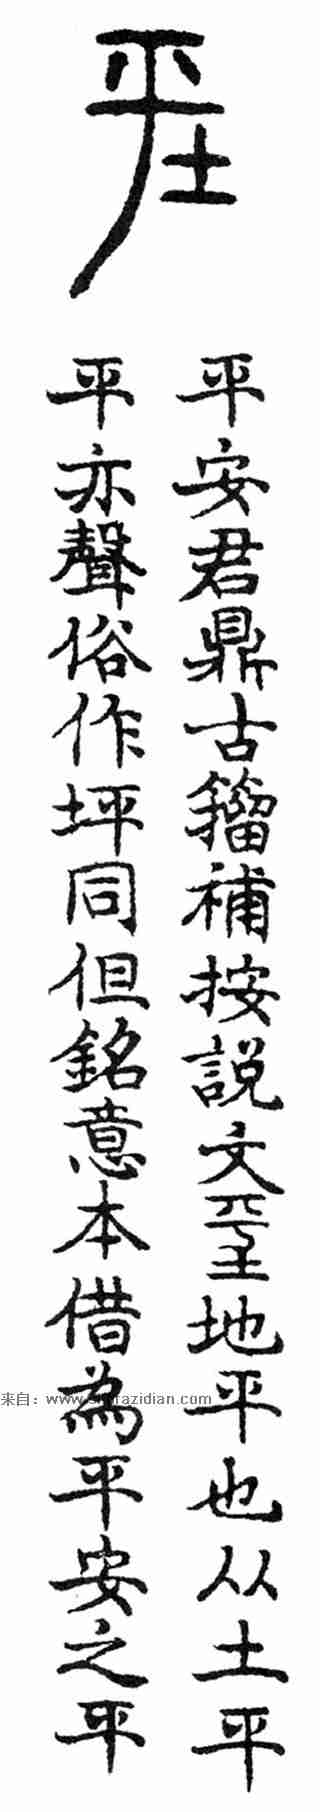 坪
平安君鼎古籀補按說文坪地平也从土平
平亦聲俗作坪同但銘意本借為平安之平
来自：www.shufazidian.com